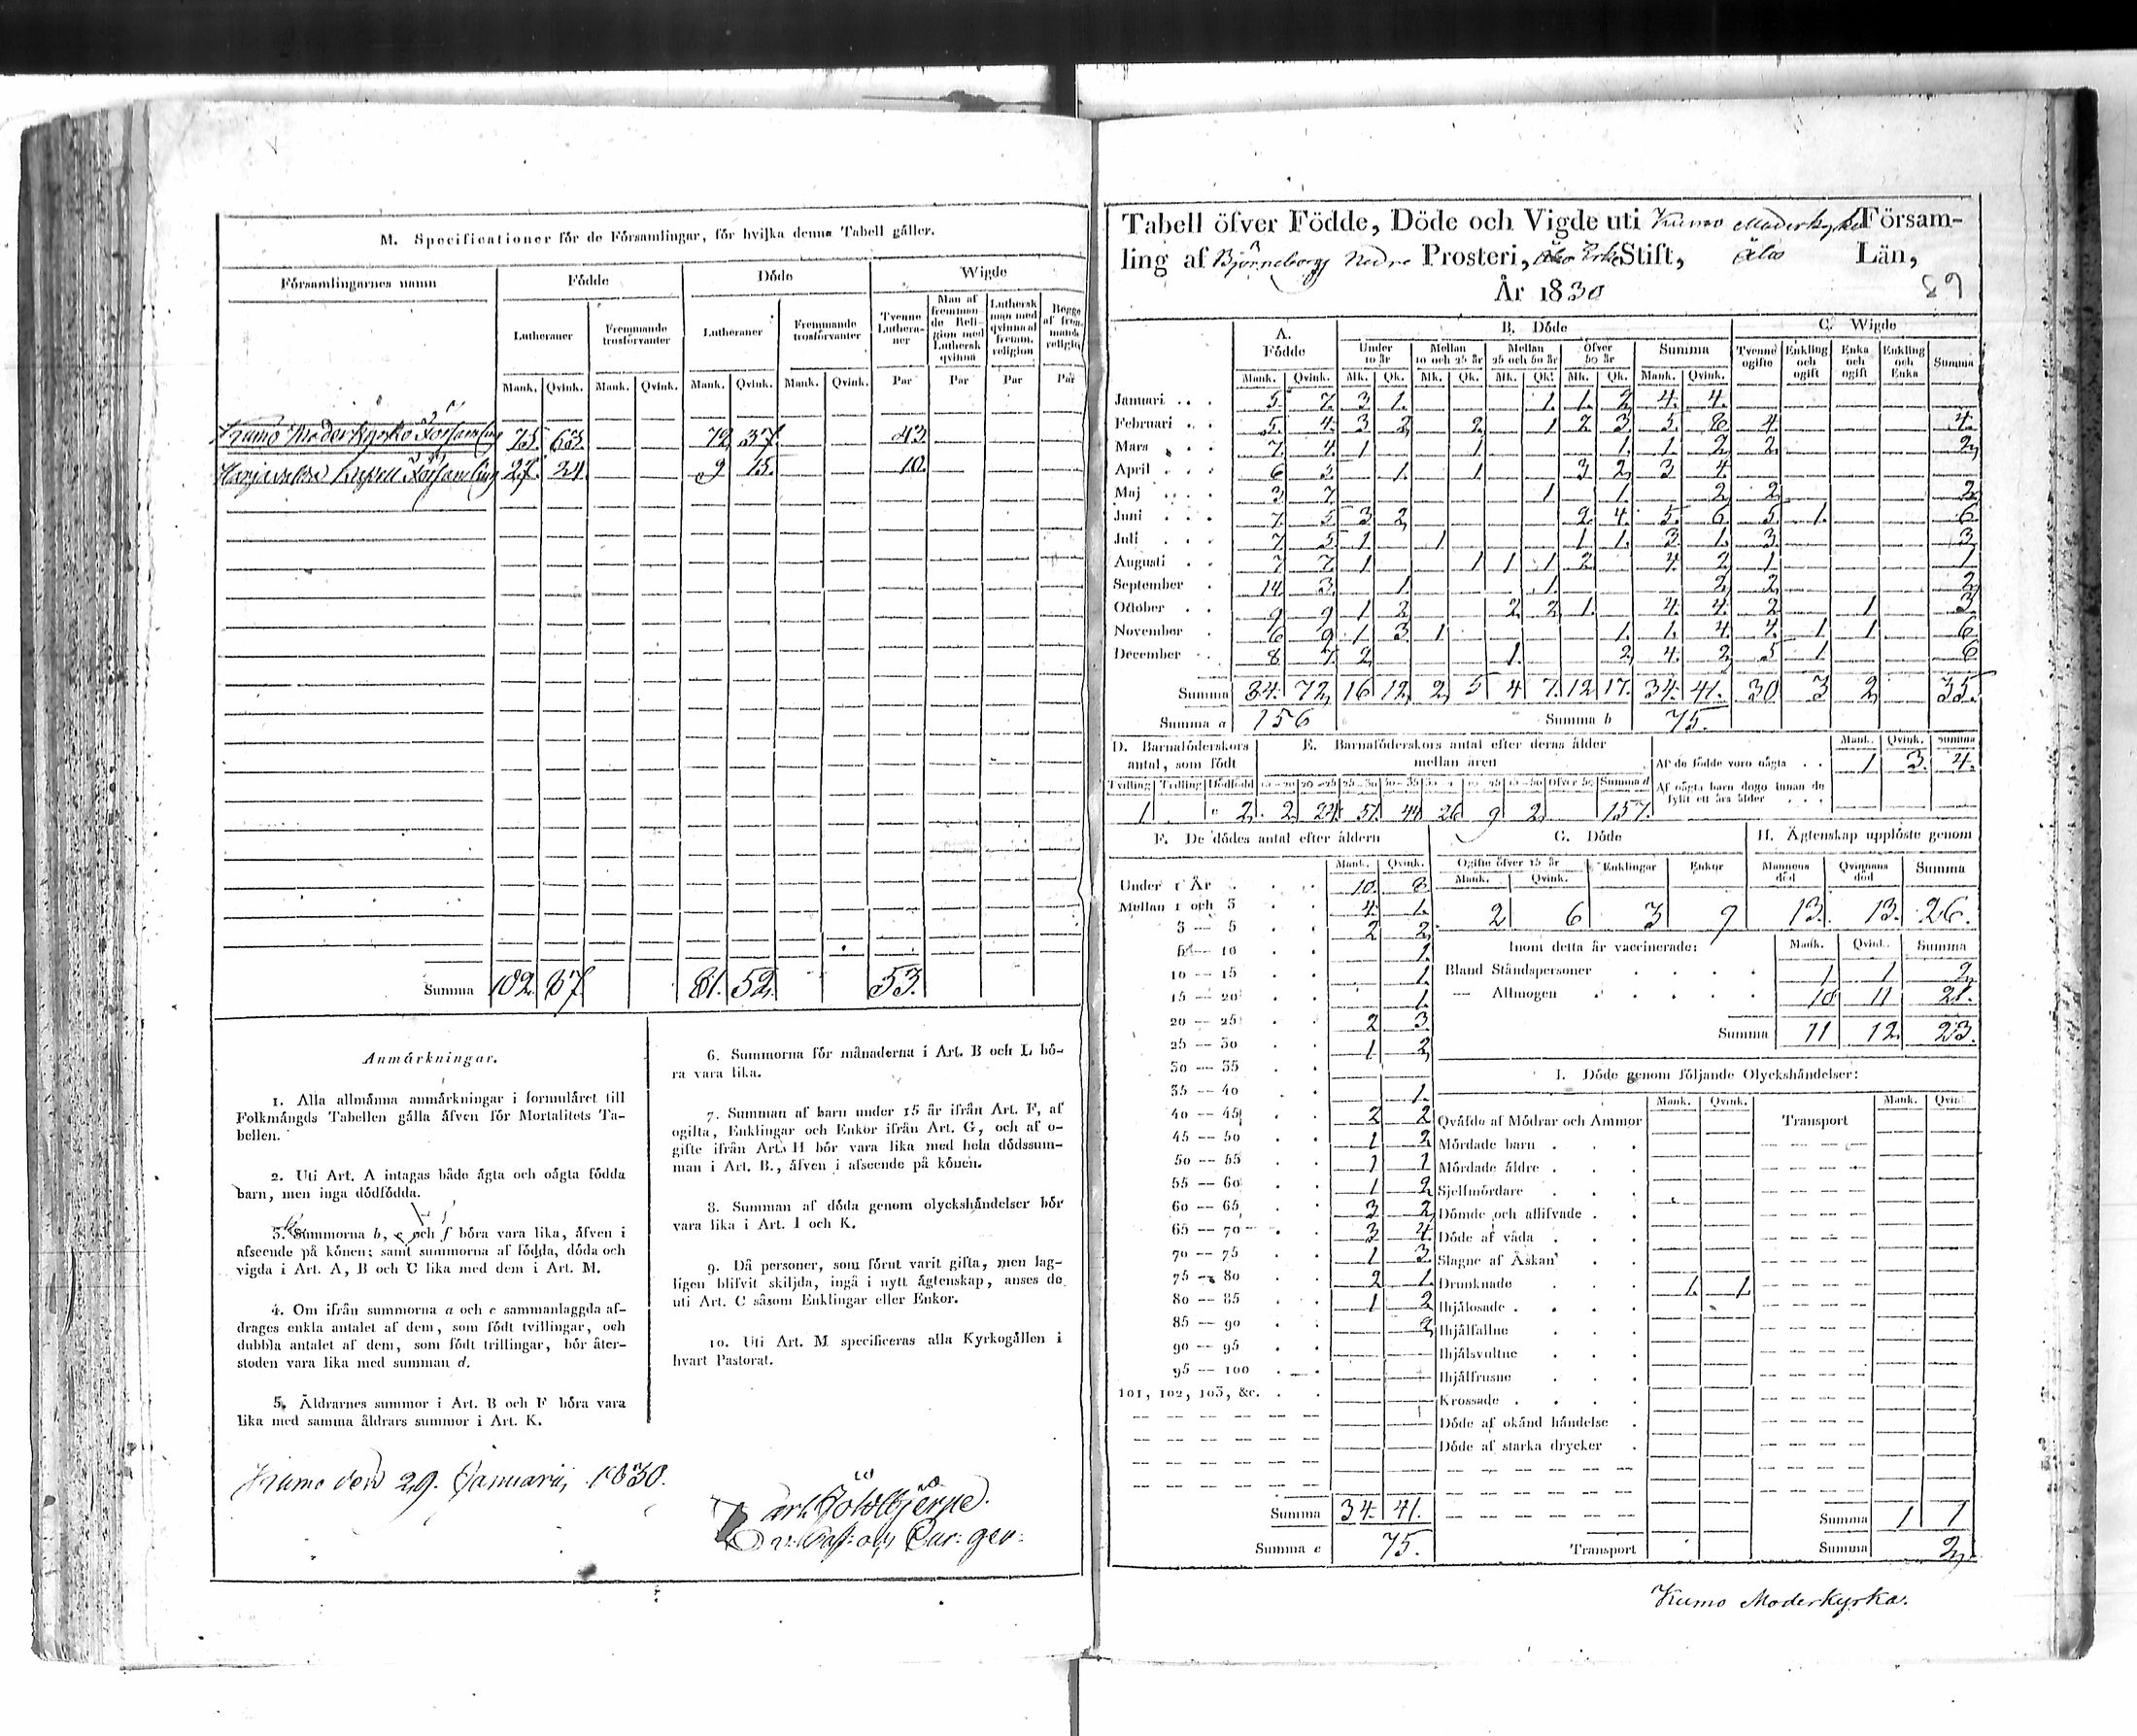 M. Specificationer för de Församlingar, för hvilka denna Tabell gäller.
Församlingarnes namn | Födde | Döde | Wigde
Lutheraner | Fremmande trosförvanter | Lutheraner | Fremmande trosförvanter | Tvenne Lutheraner | Man af fremmande Religion med Luthersk qvinna | Luthersk man med qvinna af fremm. religion | Begge af fremmande religion
Mank. | Qvink. | Mank. | Qvink. | Mank. | Qvink. | Mank. | Qvink. | Par | Par | Par | Par
Kumo Moderkyrko Församling 75. 63. 72 37 43
Harjavalda Capell Församling 27. 24. 9 15. 10.
Summa 102. 87. 81. 52. 53.
Anmärkningar.
1. Alla allmänna anmärkningar i formuläret till
Folkmängds Tabellen gälla äfven för Mortalitets Ta-
bellen.
2. Uti Art. A intagas både ägta och oägta födda
barn, men inga dödfödda.
3. Summorna b, e och f böra vara lika, äfven i
afseende på könen; samt summorna af födda, döda och
vigda i Art. A, B och C lika med dem i Art. M.
4. Om ifrån summorna a och c sammanlaggda af-
drages enkla antalet af dem, som födt tvillingar, och
dubbla antalet af dem, som födt trillingar, bör åter-
stoden vara lika med summan d.
5. Åldrarnes summor i Art. B och F böra vara
lika med samma åldrars summor i Art. K.
6. Summorna för månaderna i Art. B och L bö-
ra vara lika.
7. Summan af barn under 15 år ifrån Art. F, af
ogifta, Enklingar och Enkor ifrån Art. G, och af o-
gifte ifrån Art. H bör vara lika med hela dödssum-
man i Art. B., äfven i afseende på könen.
8. Summan af döda genom olyckshändelser bör
vara lika i Art. I och K.
9. Då personer, som förut varit gifta, men lag-
ligen blifvit skiljda, ingå i nytt ägtenskap, anses de
uti Art. C såsom Enklingar eller Enkor.
10. Uti Art. M specificeras alla Kyrkogällen i
hvart Pastorat.
Kumo den 29. Januarii, 1830.
Tabell öfver Födde, Döde och Vigde uti Kumo Moderkyrko Försam-
ling af Björneborgs Nedre Prosteri, Åbo Erke Stift, Åbo Län,
År 1830
89
A. Födde | B. Döde | C. Wigde
Under 10 år | Mellan 10 och 25 år | Mellan 25 och 50 år | Öfver 50 år | Summa | Tvenne ogifte | Enkling och ogift | Enka och ogift | Enkling och Enka | Summa
Mank. | Qvink. | Mk. | Qk. | Mk. | Qk. | Mk. | Qk. | Mk. | Qk. | Mank. | Qvink.
Januari 5 7 3 1 1 1 2 4 4
Februari 5 4 3 2 2 1 2 3 5 8 4 4
Mars 7 4 1 1 1 1 2 2 2
April 6 5 1 1 3 2 3 4
Maj 3 7 1 1 2 2 2
Juni 7 5 3 2 2 4 5 6 5 1 6
Juli 7 5 1 1 1 1 3 1 3 3
Augusti 7 7 1 1 1 1 2 4 2 1 1
September 14 3 1 1 2 2 2
October 9 9 1 2 2 2 1 4 4 2 1 3
November 6 9 1 3 1 1 1 4 4 1 1 6
December 8 7 2 1 2 4 2 5 1 6
Summa 84. 72 16 12 2 5 4 7 12 17. 34. 41. 30 3 2 35
Summa a 156 Summa b 75.
D. Barnaföderskors antal, som födt | E. Barnaföderskors antal efter deras ålder mellan åren | Mank. | Qvink. | Summa
Af de födde voro oägta 1 3 4.
Af oägta barn dogo innan de fyllt ett års ålder
Tvilling | Trilling | Dödfödd | 15—20 | 20—25 | 25—30 | 30—35 | 35—4 | 40—45 | 45—50 | Öfver 50 | Summa d
1 c 2 2 24 51 40 26 9 2 157.
F. De dödes antal efter åldern
Mank. Qvink.
Under 1 År 10. 8.
Mellan 1 och 3 4. 1.
3 — 5 2 2
5 — 10 1.
10 — 15 1.
15 — 20 1.
20 — 25 2 3
25 — 30 1 2
30 — 35
35 — 40 1.
40 — 45 2 2
45 — 50 1 2
50 — 55 1 1
55 — 60 1 2
60 — 65 3 2
65 — 70 3 4
70 — 75 1 3
75 — 80 2 1
80 — 85 1 2
85 — 90 2
90 — 95
95 — 100
101, 102, 103, &c.
Summa 34. 41.
Summa e 75.
G. Döde | H. Ägtenskap upplöste genom
Ogifte öfver 15 år | Enklingar | Enkor | Mannens död | Qvinnans död | Summa
Mank. | Qvink.
2 6 3 9 13. 13. 26.
Inom detta år vaccinerade: Mank. Qvink. Summa
Bland Ståndspersoner 1 1 2
— Allmogen 10 11 21.
Summa 11 12 23.
I. Döde genom följande Olyckshändelser:
Mank. Qvink. Mank. Qvink.
Qväfde af Mödrar och Ammor Transport
Mördade barn
Mördade äldre
Sjelfmördare
Dömde och aflifvade
Döde af våda
Slagne af Åskan
Drunknade 1. 1.
Ihjälosade
Ihjälfallne
Ihjälsvultne
Ihjälfrusne
Krossade
Döde af okänd händelse
Döde af starka drycker
Summa 1 1
Transport Summa 2
Kumo Moderkyrka.